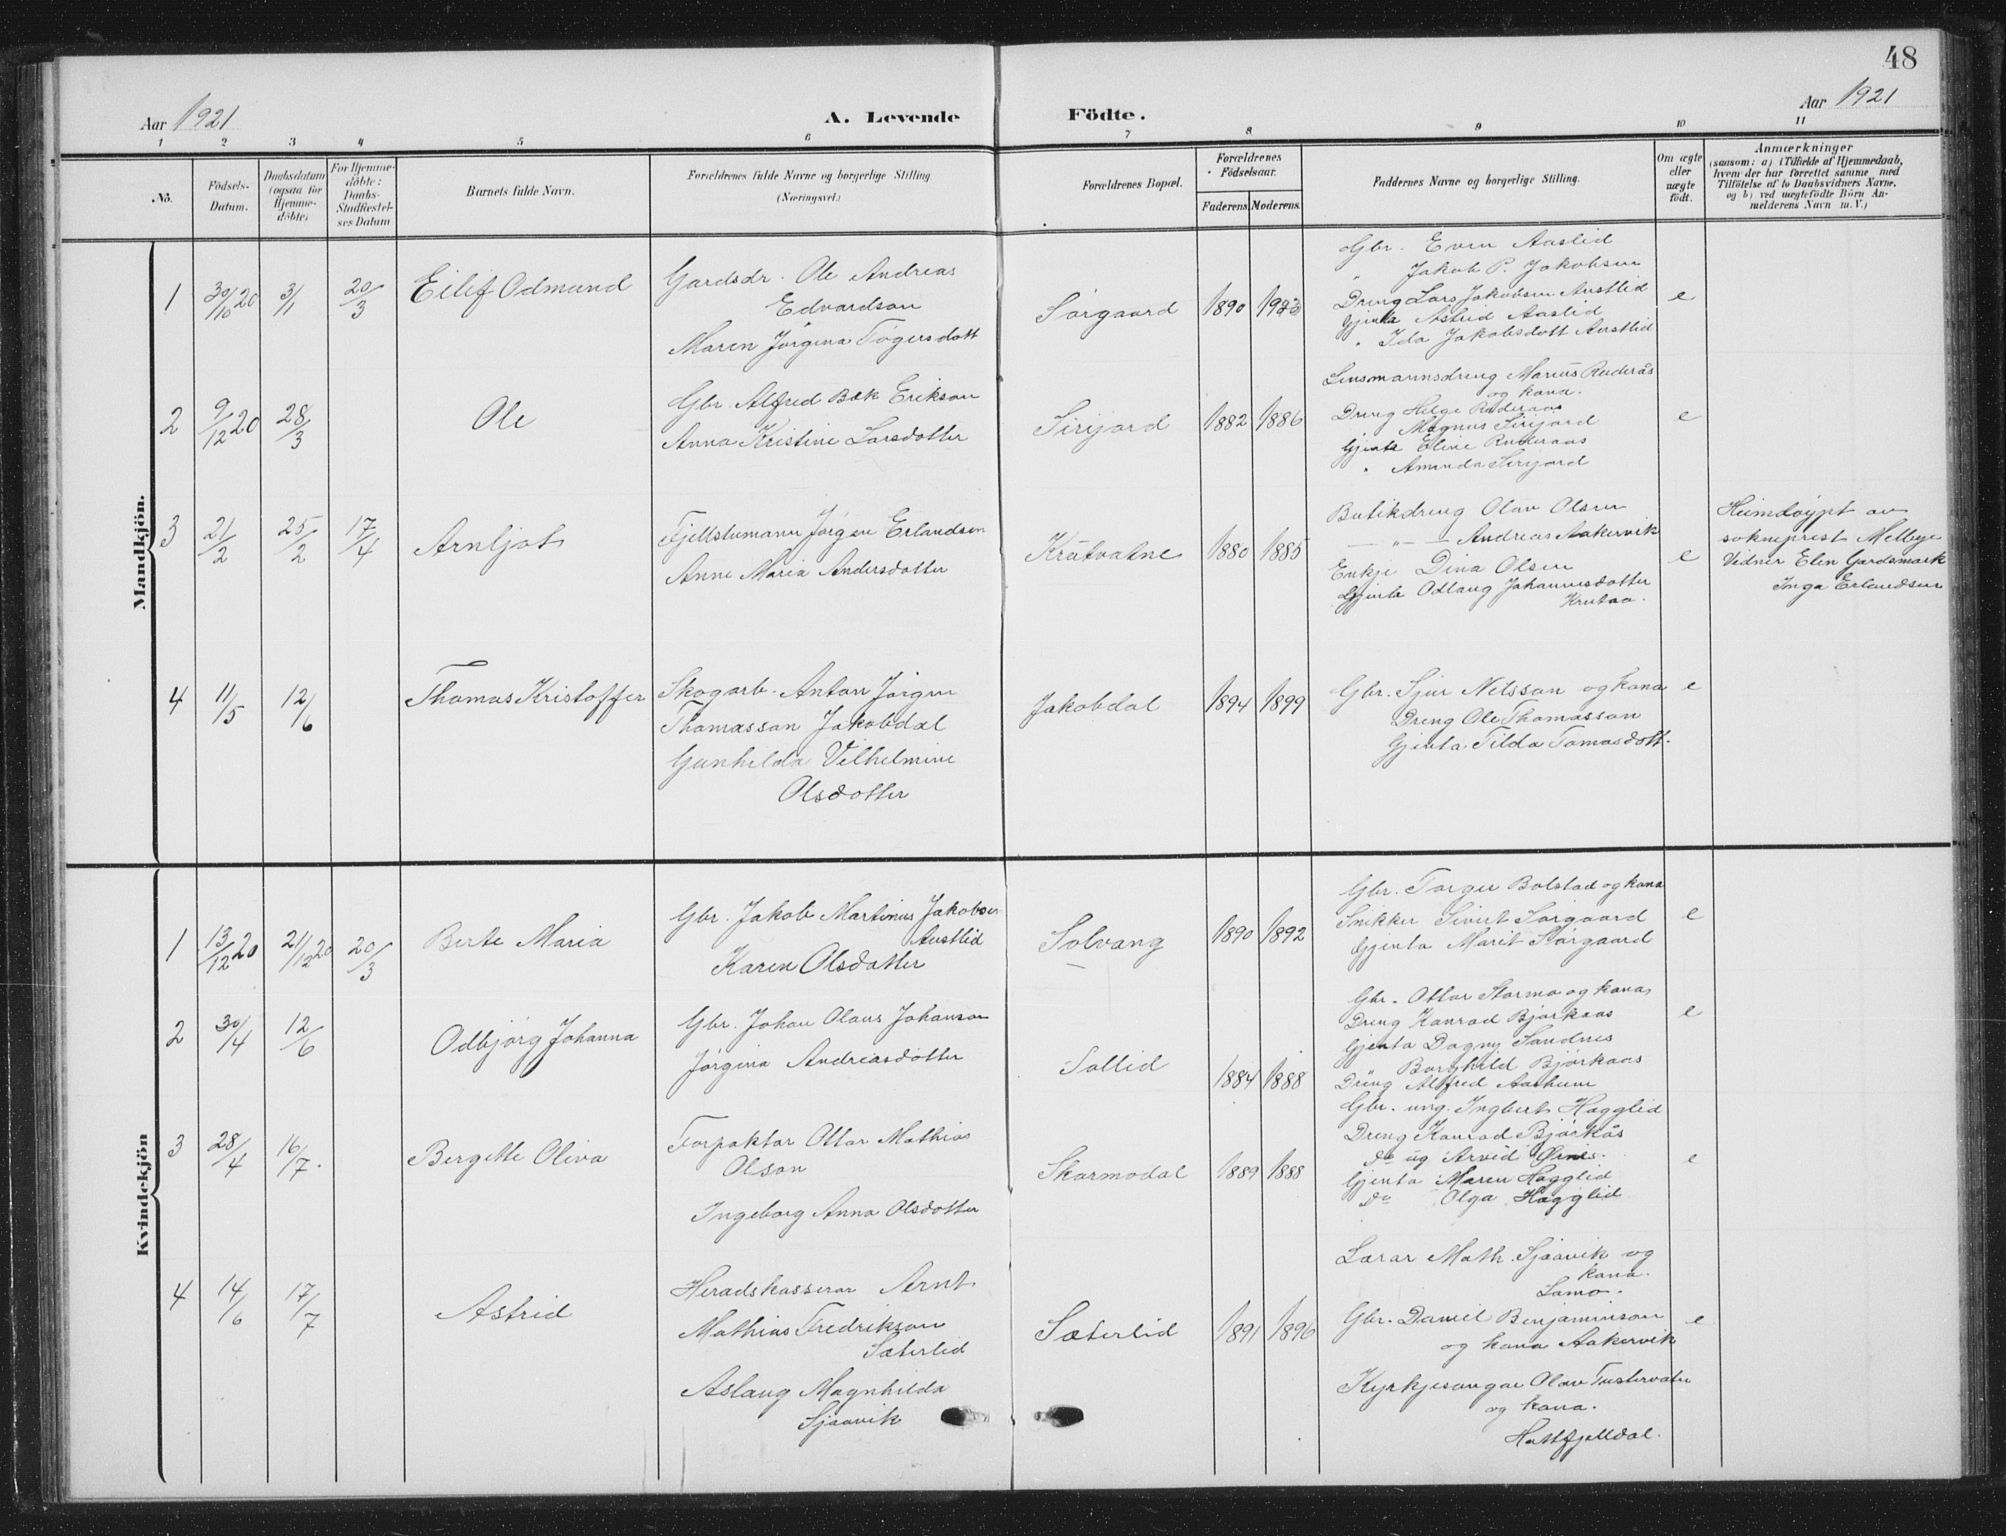 48
Aar 1921
A. Levende Födte.
Aar 1921
1 2 3 4 5 6 7 8 9 10 11
No.
Födsels-Datum.
Daabsdatum (ogsaa for Hjemme-döbte)
For Hjemme-döbte: Daabs-Stadfæstelses Datum
Barnets fulde Navn.
Forældrenes fulde Navne og borgerlige Stilling
(Næringsvei.)
Forældrenes Bopæl.
Forældrenes Födselsaar.
Faderens. Moderens.
Faddernes Navne og borgerlige Stilling.
Om ægte eller uægte födt.
Anmærkninger
(saasom: a) i Tilfælde af Hjemmedaab,
hvem der har forrettet samme, med
Tilföielse af to Daabsvidners Navne,
og b) ved uægtefödte Börn An-
melderens Navn m. V.)
Mandkjön.
1 30/10 20 3/1 20/3 Eilif Odmund
Gardsdr. Ole Andreas
Edvardson
Maren Jørgina Tøgersdott
Sørgaard 1890
Gbr. Even Aaslid
" Jakob P. Jakobsen
Dreng Lars Jakobsen Austlid
Gjenta Astrid Aaslid
" Ida Jakobsdott Austlid
e
2 9/12 20 28/3 Ole
Gbr. Alfred Bæk Erikson
Anna Kristine Larsdotter
Sirijord 1882 1886
Lensmannsdreng Marius Ruderås
og kona.
Dreng Helge Ruderaas
" Magnus Sirijord
Gjenta Eline Ruderaas
" Aminda Sirijord
e
3 21/2 25/2 17/4 Arnljot
Fjellstumann Jørgen Erlandsen
Anne Maria Andersdotter
Krutvatne 1880 1885
Butikdreng Olav Olsen
— " — Andreas Aakervik
Enkje Dina Olsen
Gjenta Odlaug Johannesdotter
Krutaa.
e
Heimdøypt av
sokneprest Melbye
Vidner Elen Gardsmark
Inga Erlandsen
4 11/5 12/6 Thomas Kristoffer
Skogarb. Anton Jørgen
Thomasson Jakobdal
Gunhilda Vilhelmine
Olsdotter
Jakobdal 1894 1899
Gbr. Sjur Nelsson og kona
Dreng Ole Thomasson
Gjenta Tilda Tomasdott.
e
Kvindekjön
1 13/12 20 21/12 20 20/3 Berte Maria
Gbr. Jakob Martinus Jakobsen
Austlid
Karen Olsdatter
Solvang 1890 1892
Gbr. Torger Bolstad og kona
Snikker Sivert Sørgaard
Gjenta Marit Sørgaard
e
2 30/4 12/6 Odbjørg Johanna
Gbr. Johan Olaus Johanson
Jørgina Andreasdotter
Sollid 1884 1888
Gbr. Ottar Stormo og kona
Dreng Konrad Bjørkaas
Gjenta Dagny Sandnes
Borghild Bjørkaas
Dreng Alfred Aasheim
e
3 28/4 16/7. Bergitte Oliva
Forpaktar Ottar Mathias
Olson
Ingeborg Anna Olsdotter
Skarmodal 1889 1888
Gbr. ung. Ingbert Hagglid
Dreng Konrad Bjørkås
do ug Arvid
Gjenta Maren Hagglid
do Olga Hagglid
e
4 14/6 17/7 Astrid
Heradskasserar Arnt
Mathias Fredrikson
Sæterlid
Aslaug Magnhilda
Sjaavik
Sæterlid 1891 1896
Lærar Math. Sjaavik og
kona.
Lamo.
Gbr. Daniel Benjaminson
og kona Aakervik
Kyrkjesongar Olav Tustervatn
og kona.
Hattfjelldal.
e